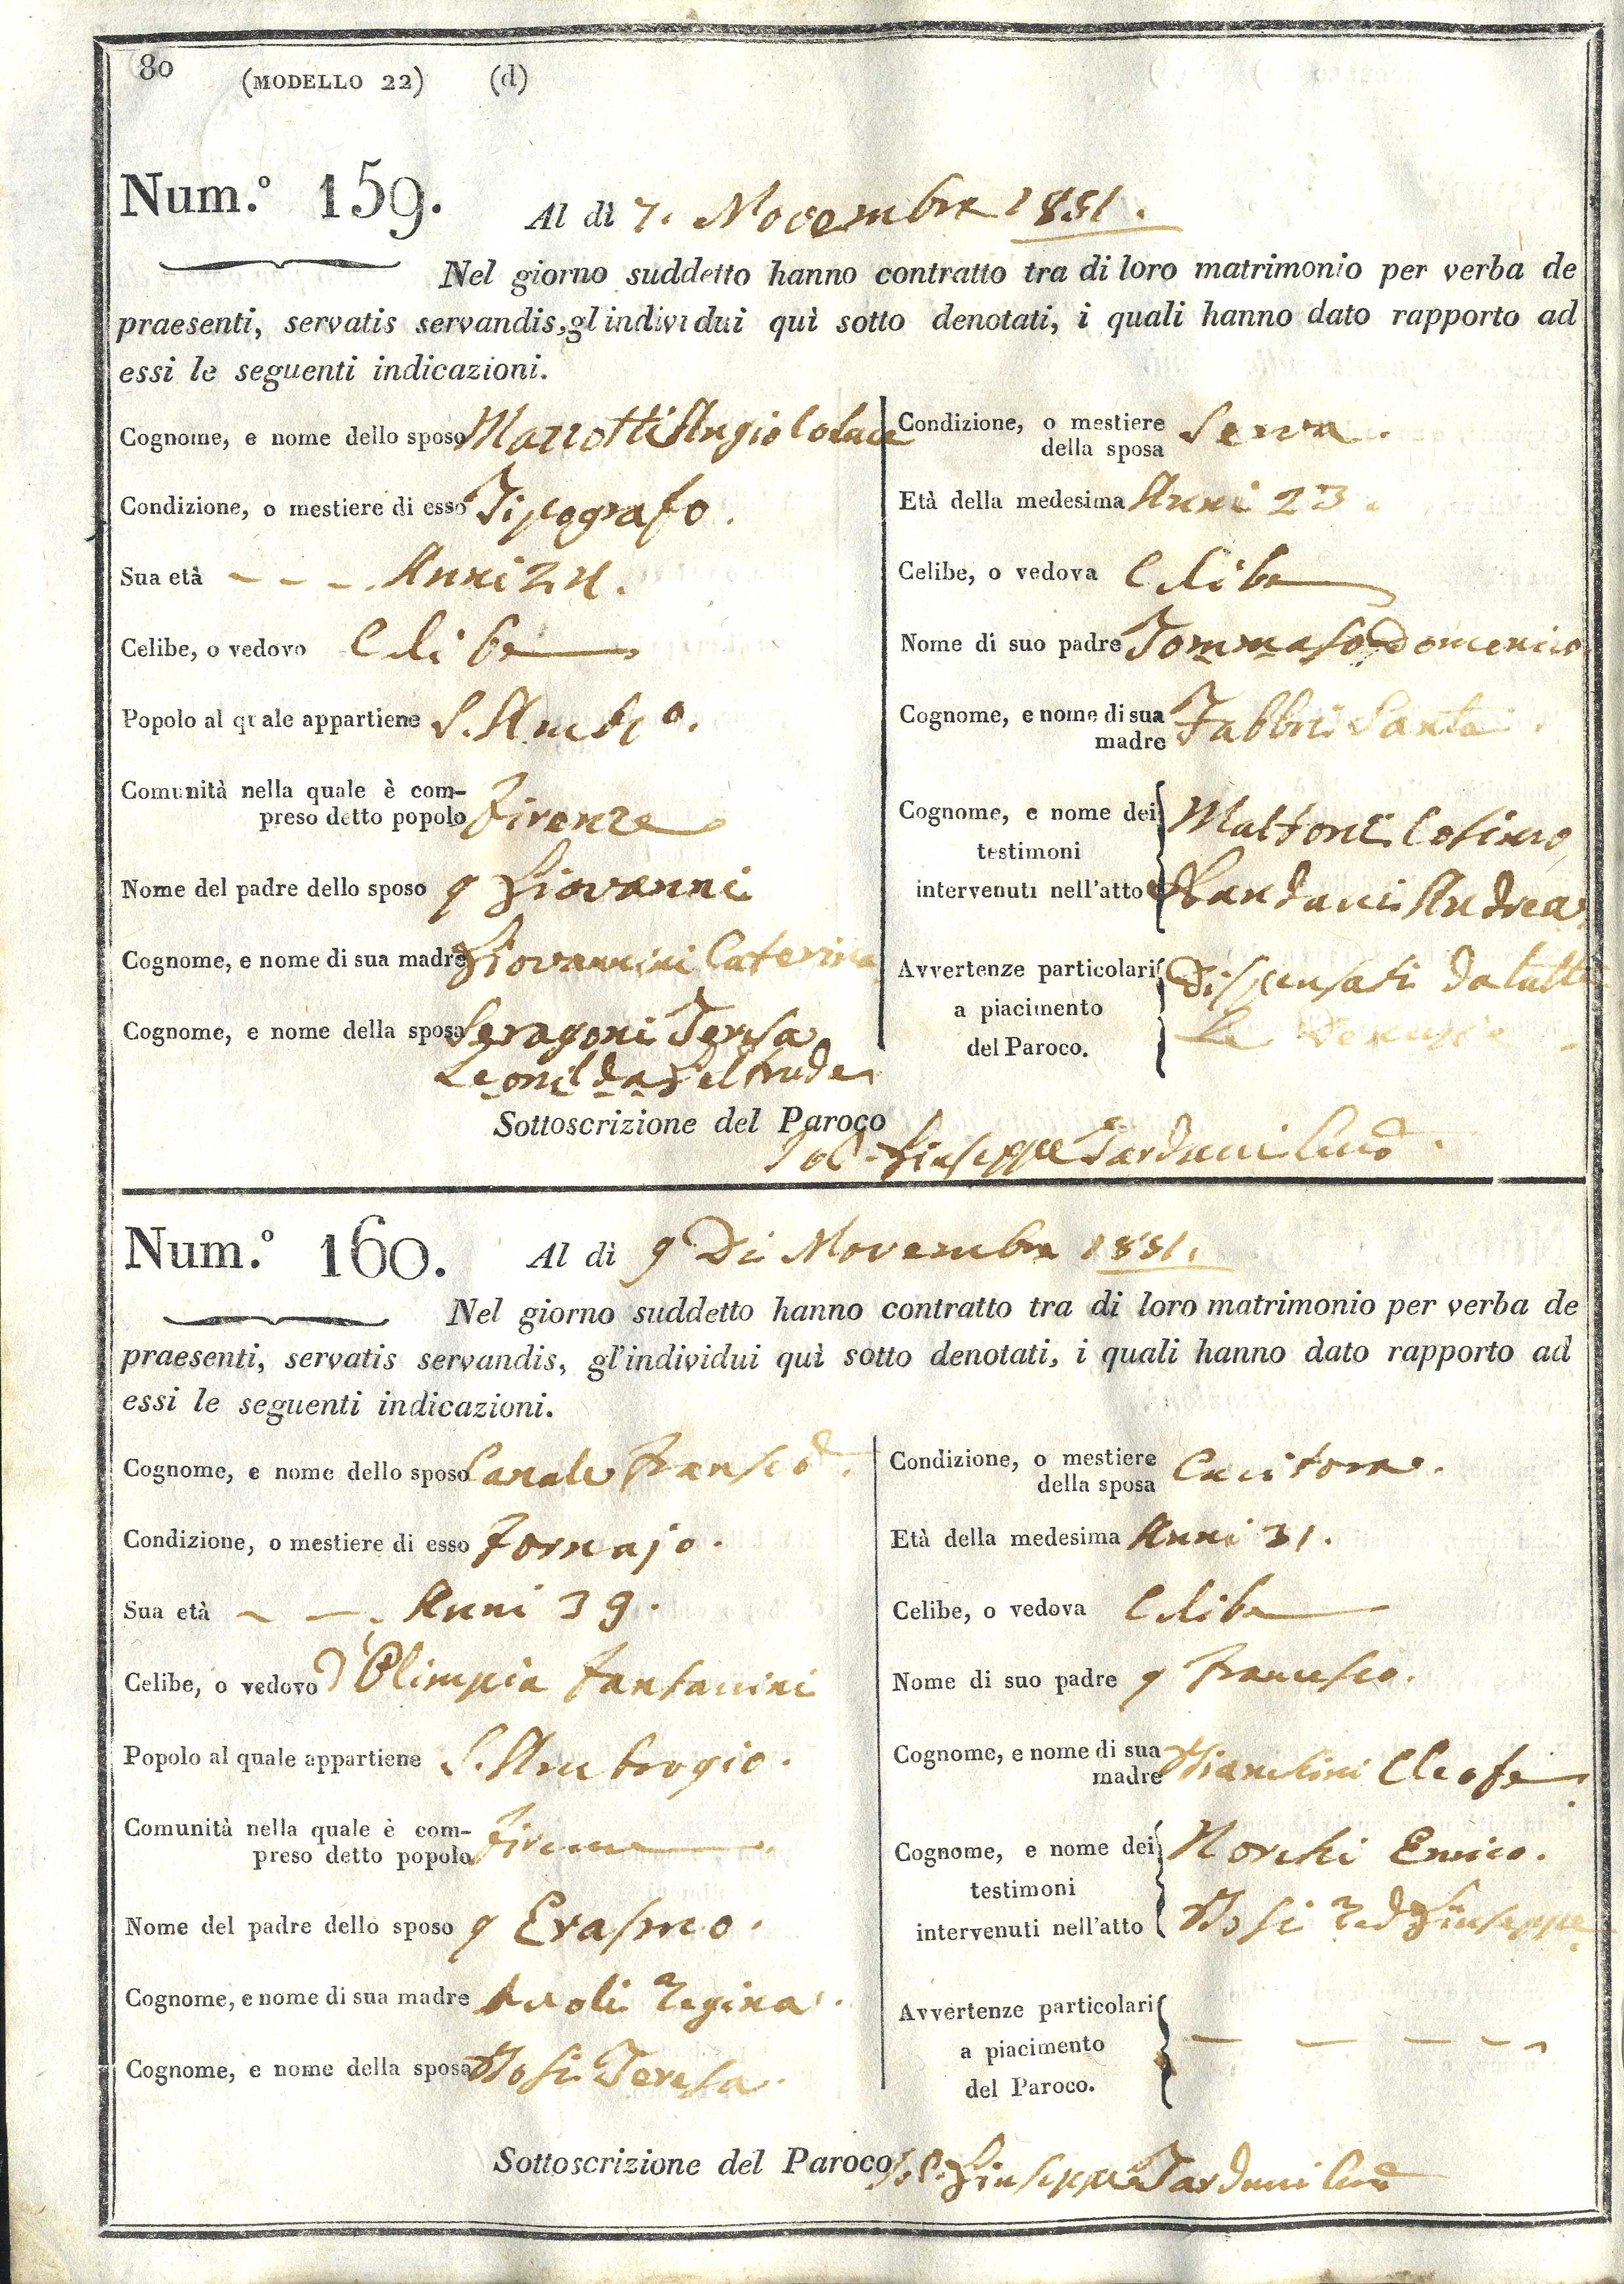 80 (MODELLO 22) (d)
Num.º 159. Al dì 7. Novembre 1851.
Nel giorno suddetto hanno contratto tra di loro matrimonio per verba de
praesenti, servatis servandis, gl'individui quì sotto denotati, i quali hanno dato rapporto ad
essi le seguenti indicazioni.
Cognome, e nome dello sposo Mazzotti Angiolo
Condizione, o mestiere di esso Tipografo.
Sua età - - - Anni 24.
Celibe, o vedovo Celibe
Popolo al quale appartiene S. Amb.º
Comunità nella quale è com-
preso detto popolo Firenze
Nome del padre dello sposo q Giovanni
Cognome, e nome di sua madre Giovannini Caterina
Cognome, e nome della sposa Seragoni Teresa
Leonilda Geltrude
Condizione, o mestiere
della sposa Serva.
Età della medesima Anni 23.
Celibe, o vedova Celibe
Nome di suo padre Tommaso Domenico
Cognome, e nome di sua
madre Fabbri Santa.
Cognome, e nome dei Mattoni Cosimo
testimoni
intervenuti nell'atto Andrea
Avvertenze particolari Dispensati da tutte
a piacimento Le Denunzie
del Paroco.
Sottoscrizione del Paroco
Giuseppe Tarduci
Num.º 160. Al dì 9 Di Novembre 1851.
Nel giorno suddetto hanno contratto tra di loro matrimonio per verba de
praesenti, servatis servandis, gl'individui quì sotto denotati, i quali hanno dato rapporto ad
essi le seguenti indicazioni.
Cognome, e nome dello sposo Canale Fransco
Condizione, o mestiere di esso Fornajo.
Sua età - - Anni 39.
Celibe, o vedovo d'Olimpia Fantacini
Popolo al quale appartiene S. Ambrogio.
Comunità nella quale è com-
preso detto popolo Firenze
Nome del padre dello sposo q Erasmo.
Cognome, e nome di sua madre Regina.
Cognome, e nome della sposa Bosi Teresa.
Condizione, o mestiere
della sposa Cucitora.
Età della medesima Anni 31.
Celibe, o vedova Celibe
Nome di suo padre q Francesco.
Cognome, e nome di sua
madre Bianchini Cleofe
Cognome, e nome dei Norchi Enrico.
testimoni
intervenuti nell'atto Bosi Giuseppe
Avvertenze particolari
a piacimento - - - -
del Paroco.
Sottoscrizione del Paroco Giuseppe Tarduci